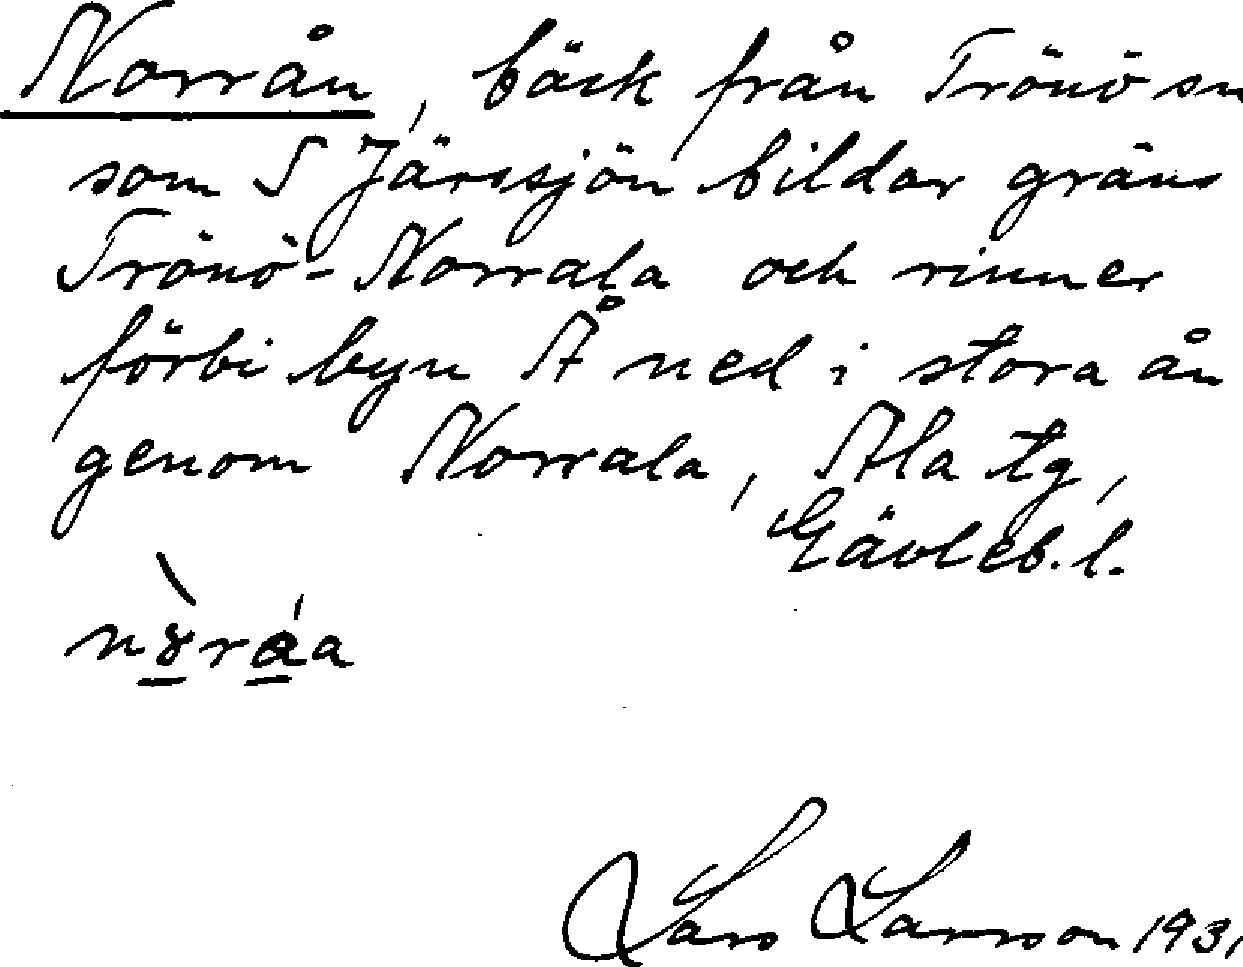 Norrån, bäck från Trönö sn
som S Järvsjön bildar gräns
Trönö-Norrala och rinner
förbi byn Å ned i stora ån
genom Norrala, Ala tg,
Gävleb. l.
Lars Larsson 1931